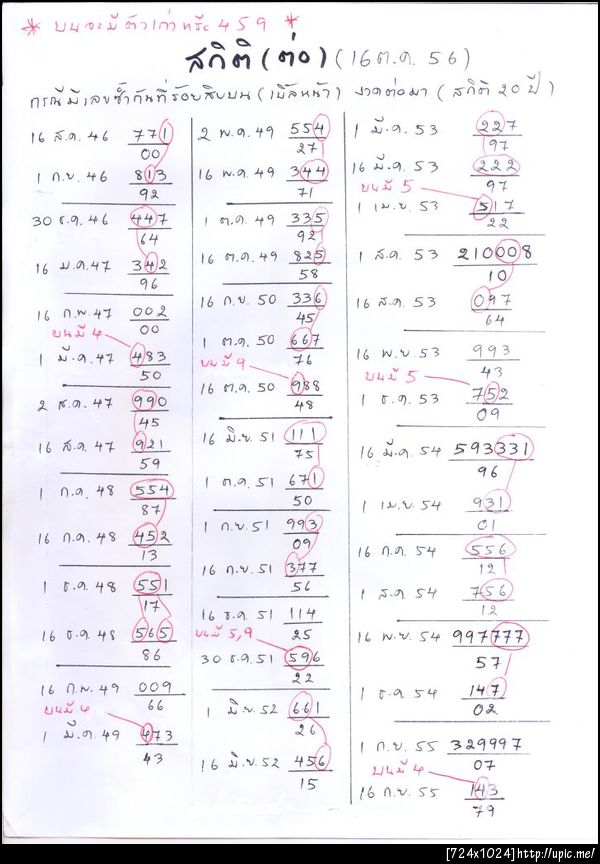 * บนจะมีตัวเก่าหรือ 4 5 9 *
สถิติ (ต่อ) (16 ต.ค. 56)
กรณีมีเลขซ้ำกันที่ร้อยสิบบน (เบิ้ลหน้า) งวดต่อมา (สถิติ 20 ปี)
16 ส.ค. 46 771
00
1 ก.ย. 46 813
92
30 ธ.ค. 46 447
64
16 ม.ค. 47 342
96
16 ก.พ. 47 002
00
บนมี 4
1 มี.ค. 47 483
50
2 ส.ค. 47 990
45
16 ส.ค. 47 921
59
1 ก.ค. 48 554
87
16 ก.ค. 48 452
13
1 ธ.ค. 48 551
17
16 ธ.ค. 48 565
86
16 ก.พ. 49 009
66
บนมี 4
1 มี.ค. 49 473
43
2 พ.ค. 49 554
27
16 พ.ค. 49 344
71
1 ต.ค. 49 335
92
16 ต.ค. 49 825
58
16 ก.ย. 50 336
45
1 ต.ค. 50 667
76
บนมี 9
16 ต.ค. 50 988
48
16 มิ.ย. 51 111
75
1 ต.ค. 51 671
50
1 ก.ย. 51 993
09
16 ก.ย. 51 377
56
16 ธ.ค. 51 114
25
บนมี 5,9
30 ธ.ค. 51 596
22
1 มิ.ย. 52 661
26
16 มิ.ย. 52 456
15
1 มี.ค. 53 227
97
16 มี.ค. 53 222
97
บนมี 5
1 เม.ย. 53 517
22
1 ส.ค. 53 210008
10
16 ส.ค. 53 097
64
16 พ.ย. 53 993
43
บนมี 5
1 ธ.ค. 53 752
09
16 มี.ค. 54 593331
96
1 เม.ย. 54 931
01
16 ก.ค. 54 556
12
1 ส.ค. 54 756
12
16 พ.ย. 54 997777
57
1 ธ.ค. 54 147
02
1 ก.ย. 55 329997
07
บนมี 4
16 ก.ย. 55 143
79
[724x1024]http://upic.me/